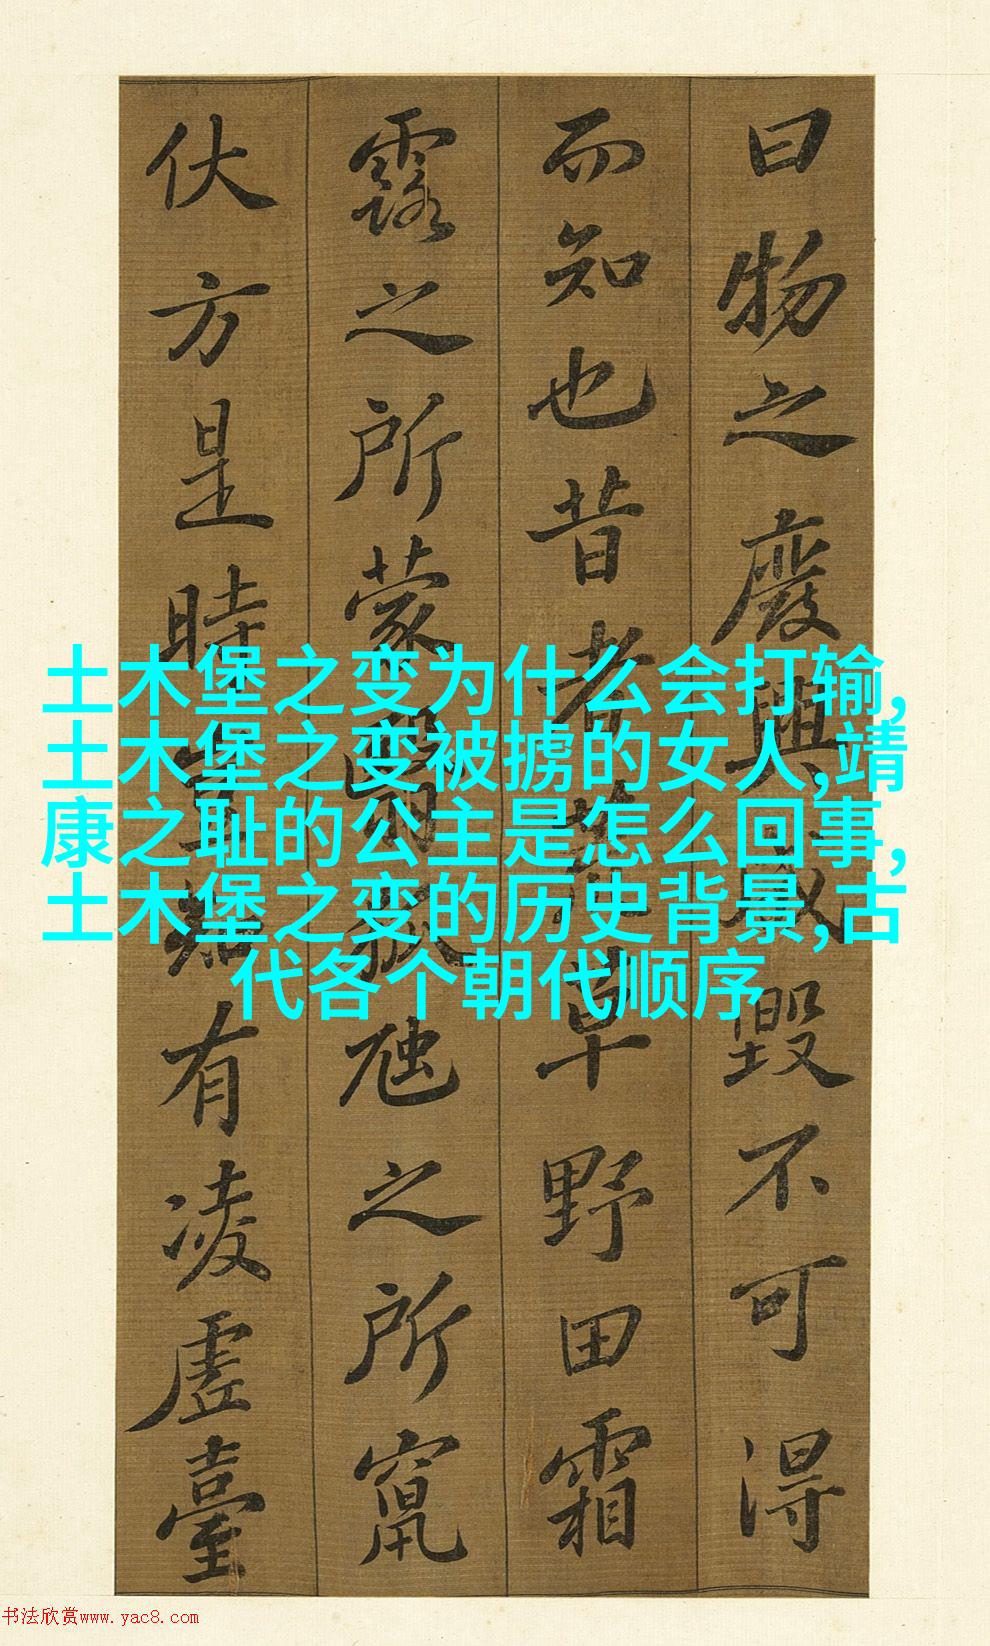 曰物之廢興成毀不可得
而知也昔者荒草野田霜
露之所蒙翳狐虺之所竄
伏方是時豈知有凌虛臺
土木堡之变为什么会打输,
土木堡之变被掳的女人,靖
康之耻的公主是怎么回事,
土木堡之变的历史背景,古
代各个朝代顺序
书法欣赏www.yac8.com